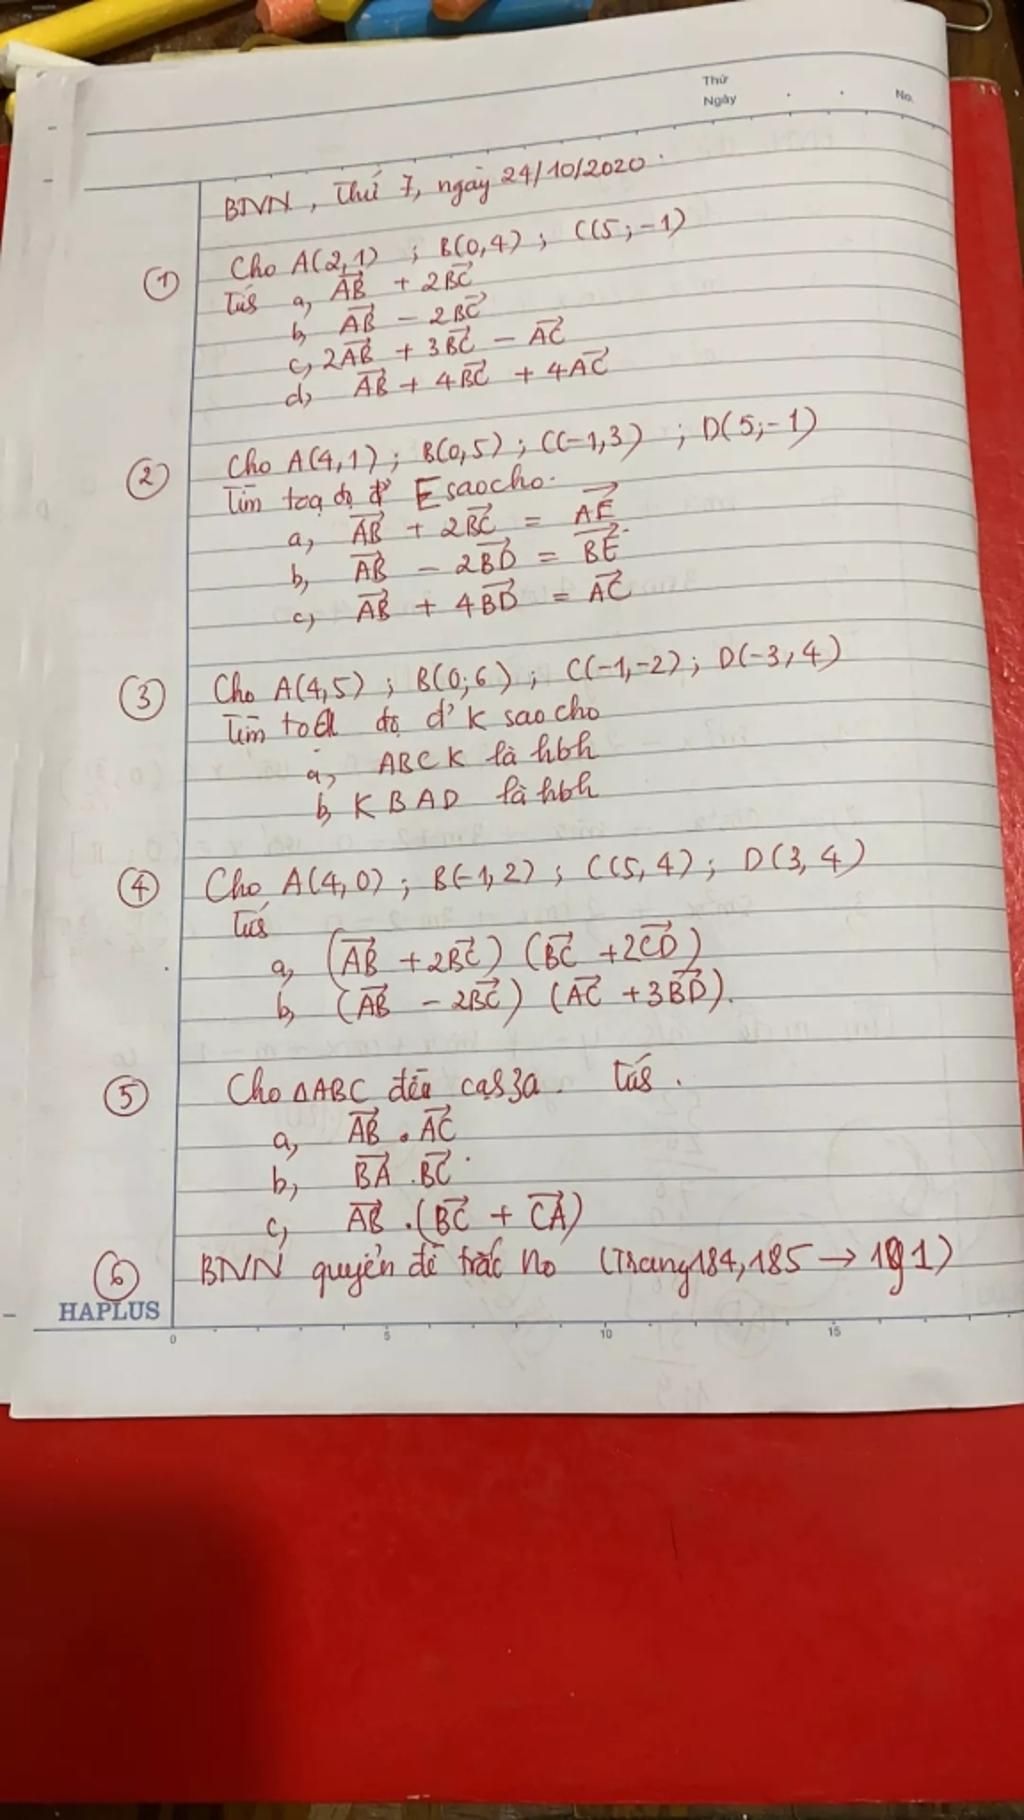 Thứ
Ngày
No.
BNN, Thứ 7, ngày 24/10/2020.
① Cho A(2,1) ; B(0,4) ; C(5;-1)
a, AB + 2BC
b, AB - 2BC
c, 2AB + 3BC - AC
d, AB + 4BC + 4AC
② Cho A(4,1) ; B(0,5) ; C(-1,3) ; D(5;-1)
Tìm toạ độ đ' E sao cho.
a, AB + 2BC = AE
b, AB - 2BD = BE.
c, AB + 4BD = AC
③ Cho A(4,5) ; B(0;6) ; C(-1,-2) ; D(-3,4)
Tìm toạ độ đ' K sao cho
a, ABCK là hbh
b, KBAD là hbh
④ Cho A(4,0) ; B(-1,2) ; C(5,4) ; D(3,4)
a, (AB + 2BC) (BC + 2CD)
b, (AB - 2BC) (AC + 3BD).
⑤ Cho ΔABC đều cạs 3a.
a, AB . AC
b, BA . BC.
c, AB . (BC + CA)
⑥ BNN quyển đề trắc No (Trang 184, 185 → 191)
HAPLUS
0 5 10 15